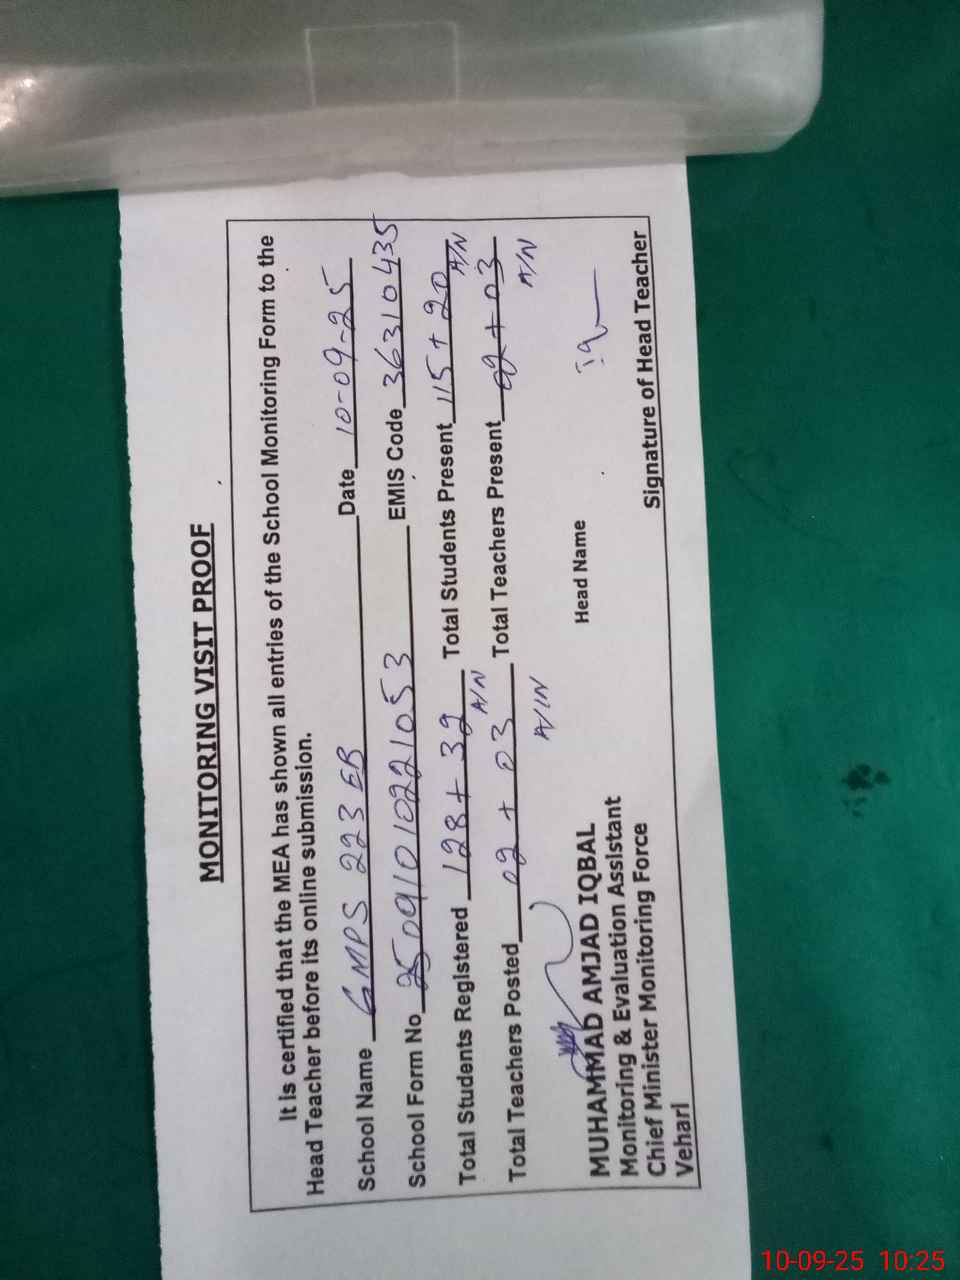 MONITORING VISIT PROOF
It is certified that the MEA has shown all entries of the School Monitoring Form to the
Head Teacher before its online submission.
School Name GMPS 223 EB Date 10-09-25
School Form No 2509101022 1053 EMIS Code 36310435
Total Students Registered 128 + 39 A/N Total Students Present 115 + 20 A/N
Total Teachers Posted 02 + 03 A/N Total Teachers Present 02 + 03 A/N
MUHAMMAD AMJAD IQBAL
Monitoring & Evaluation Assistant
Chief Minister Monitoring Force
Vehari
Head Name
Signature of Head Teacher
10-09-25 10:25